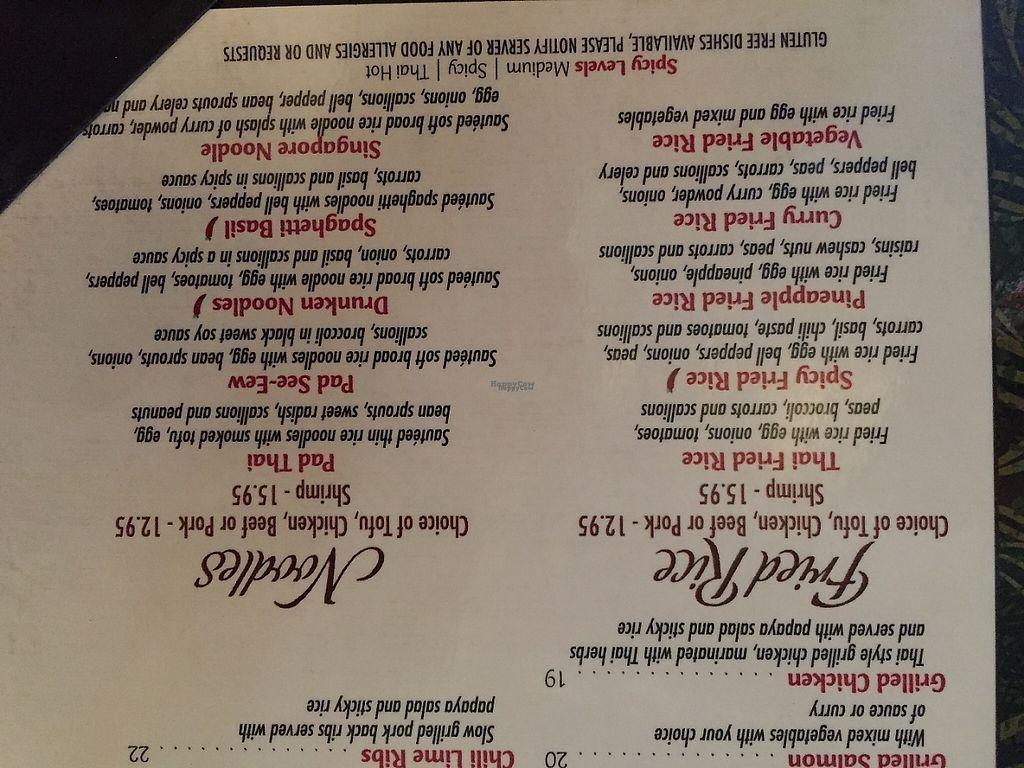 Grilled Salmon . . . . . . . . . . . . . . . . . 20
With mixed vegetables with your choice
of sauce or curry
Grilled Chicken . . . . . . . . . . . . . . . . 19
Thai style grilled chicken, marinated with Thai herbs
and served with papaya salad and sticky rice
Chili Lime Ribs . . . . . . . . . . . . . . . . . 22
Slow grilled pork back ribs served with
papaya salad and sticky rice
Fried Rice
Choice of Tofu, Chicken, Beef or Pork - 12.95
Shrimp - 15.95
Thai Fried Rice
Fried rice with egg, onions, tomatoes,
peas, broccoli, carrots and scallions
Spicy Fried Rice
Fried rice with egg, bell peppers, onions, peas,
carrots, basil, chili paste, tomatoes and scallions
Pineapple Fried Rice
Fried rice with egg, pineapple, onions,
raisins, cashew nuts, peas, carrots and scallions
Curry Fried Rice
Fried rice with egg, curry powder, onions,
bell peppers, peas, carrots, scallions and celery
Vegetable Fried Rice
Fried rice with egg and mixed vegetables
Noodles
Choice of Tofu, Chicken, Beef or Pork - 12.95
Shrimp - 15.95
Pad Thai
Sautéed thin rice noodles with smoked tofu, egg,
bean sprouts, sweet radish, scallions and peanuts
Pad See-Eew
Sautéed soft broad rice noodles with egg, bean sprouts, onions,
scallions, broccoli in black sweet soy sauce
Drunken Noodles
Sautéed soft broad rice noodle with egg, tomatoes, bell peppers,
carrots, onion, basil and scallions in a spicy sauce
Spaghetti Basil
Sautéed spaghetti noodles with bell peppers, onions, tomatoes,
carrots, basil and scallions in spicy sauce
Singapore Noodle
Sautéed soft broad rice noodle with splash of curry powder, carrots
egg, onions, scallions, bell pepper, bean sprouts and celery and
Spicy Levels Medium | Spicy | Thai Hot
GLUTEN FREE DISHES AVAILABLE, PLEASE NOTIFY SERVER OF ANY FOOD ALLERGIES AND OR REQUESTS
HappyCow